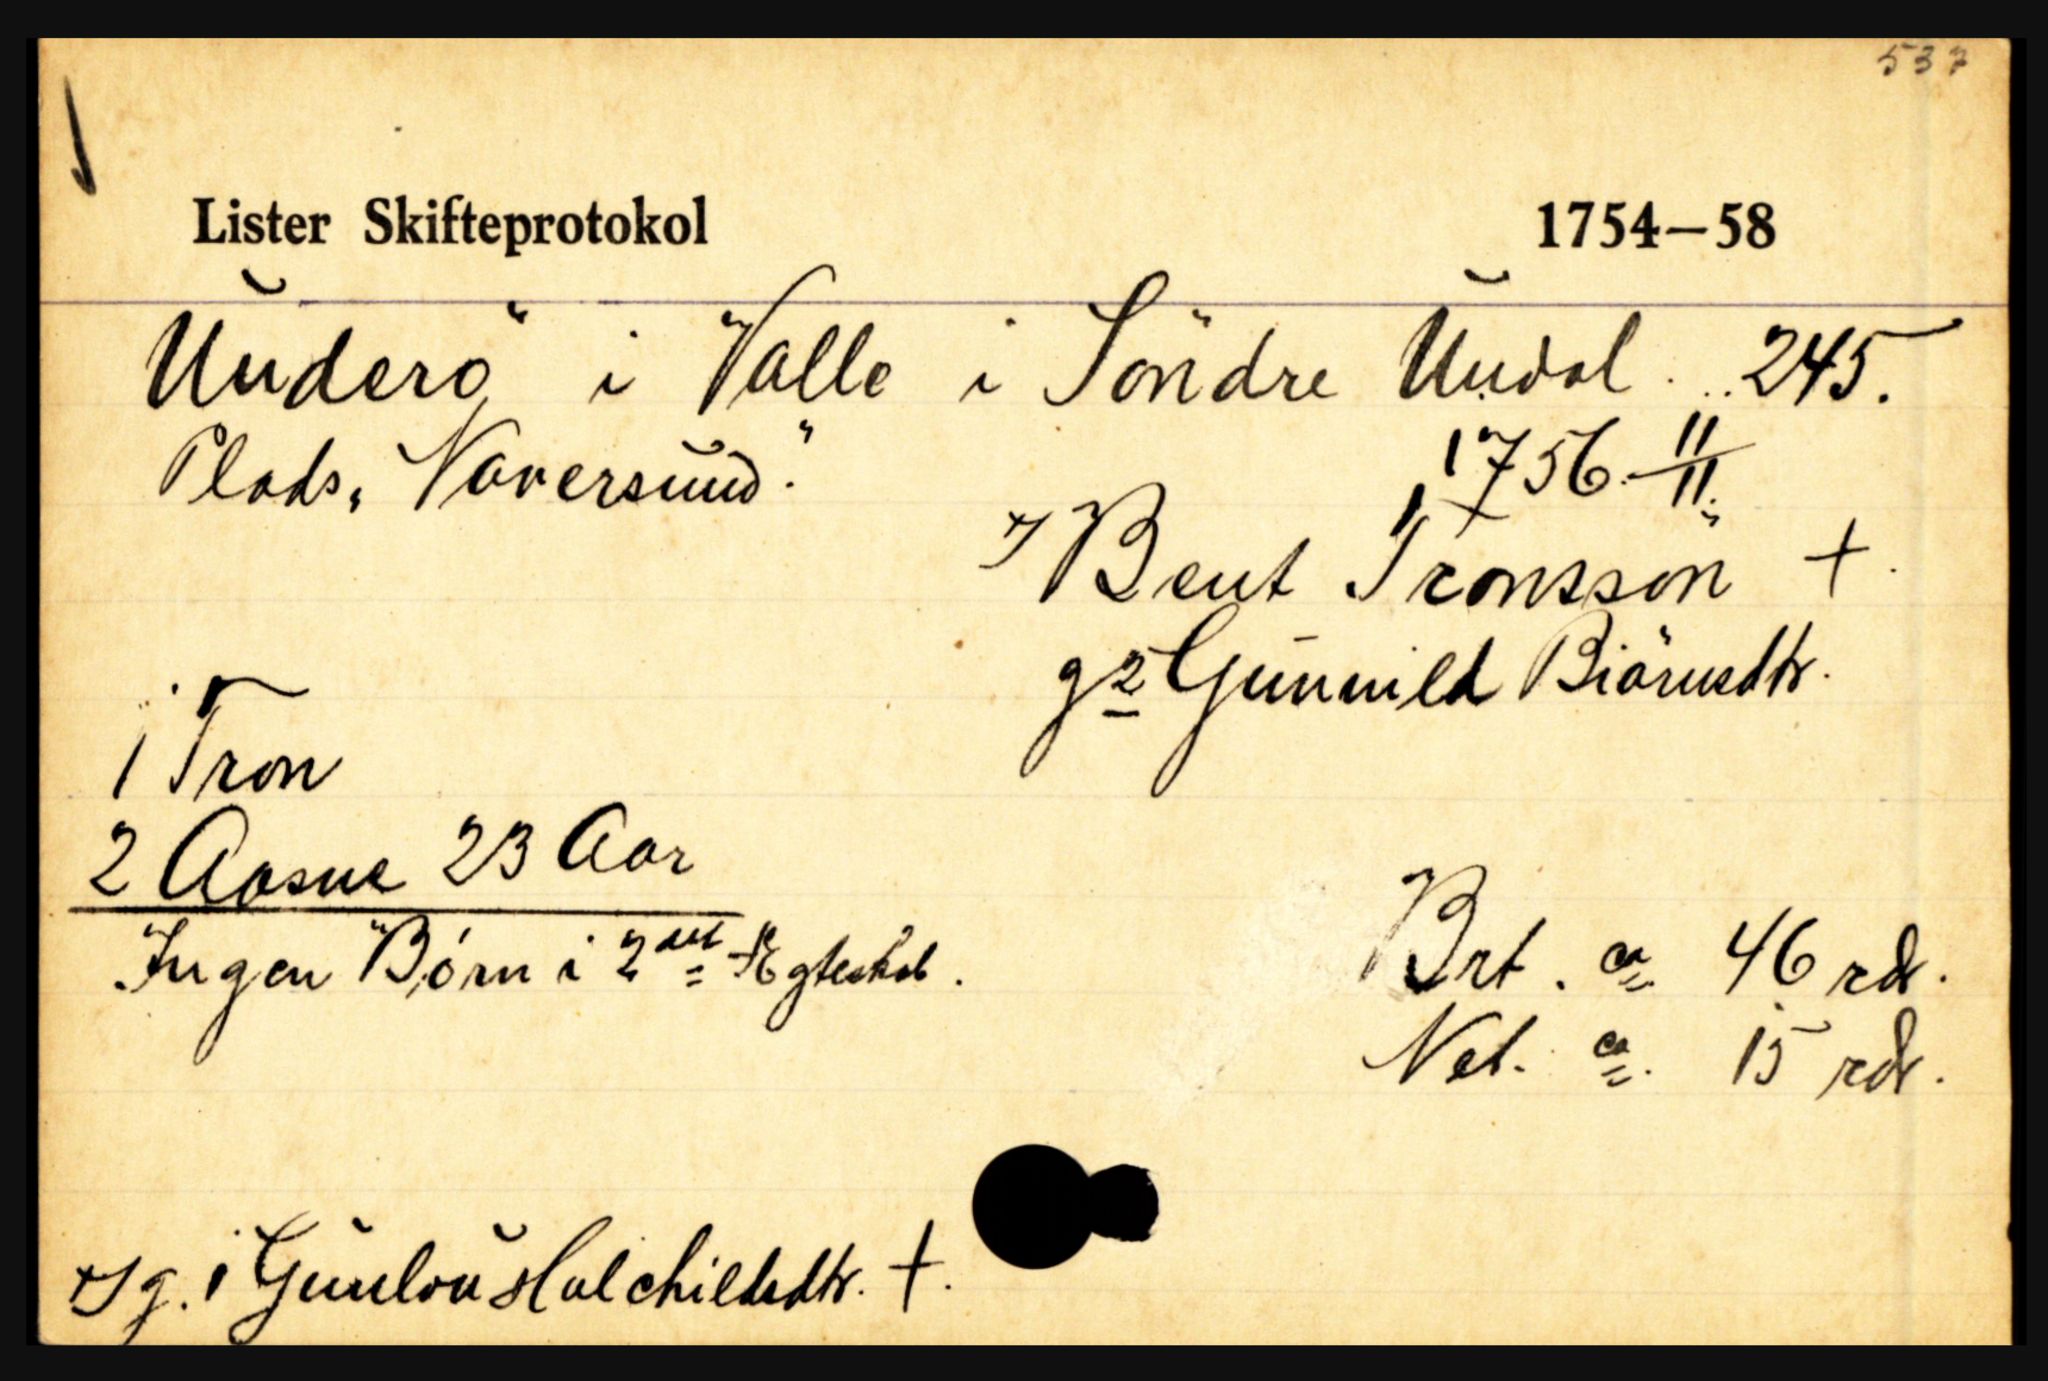 537
Lister Skifteprotokol 1754—58
Underö i Valle i Söndre Undal 245.
Plads „Naversund." 1756 11/11
× Bent Tronssön +
g 2 Gunnild Biörnsdtr.
1 Tron
2 Aasne 23 Aar
Ingen Børn i 2det Ægteskab.
Brt. ca 46 rdr.
Net. ca. 15 rdr.
× g. 1 Gunlou Halchildsdtr. +.